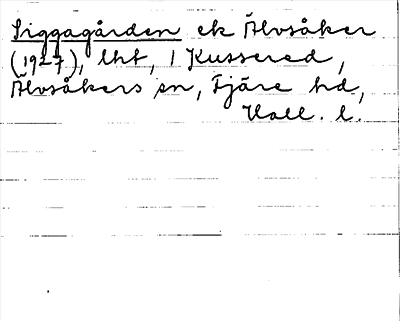 Siggagården ek Älvsåker
(1927), lht, 1 Kussered,
Älvsåkers sn, Fjäre hd,
Hall. l.